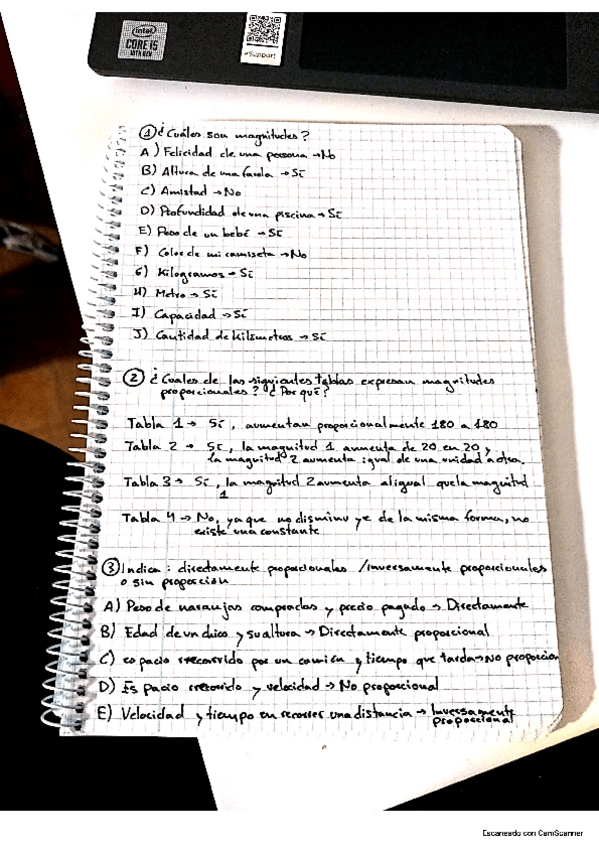 intel
CORE i5
10TH GEN
#Support
① ¿Cuáles son magnitudes?
A) Felicidad de una persona → No
B) Altura de una farola → Sí
C) Amistad → No
D) Profundidad de una piscina → Sí
E) Peso de un bebé → Sí
F) Color de mi camiseta → No
G) Kilogramos → Sí
H) Metro → Sí
I) Capacidad → Sí
J) Cantidad de kilómetros → Sí
② ¿Cuales de las siguientes tablas expresan magnitudes
proporcionales? ¿Por qué?
Tabla 1 → Sí, aumentan proporcionalmente 180 a 180
Tabla 2 → Sí, la magnitud 1 aumenta de 20 en 20,
la magnitud 2 aumenta igual de una unidad a otra.
Tabla 3 → Sí, la magnitud 2 aumenta al igual que la magnitud
1
Tabla 4 → No, ya que no disminuye de la misma forma, no
existe una constante
③ Indica: directamente proporcionales / inversamente proporcionales
o sin proporción
A) Peso de naranjas compradas y precio pagado → Directamente
B) Edad de un chico y su altura → Directamente proporcional
C) espacio recorrido por un camión y tiempo que tarda → No proporcion
D) Espacio recorrido y velocidad → No proporcional
E) Velocidad y tiempo en recorrer una distancia → Inversamente
proporcional
Escaneado con CamScanner